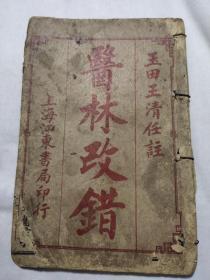 玉田王清任註
醫林改錯
上海沺東書局印行